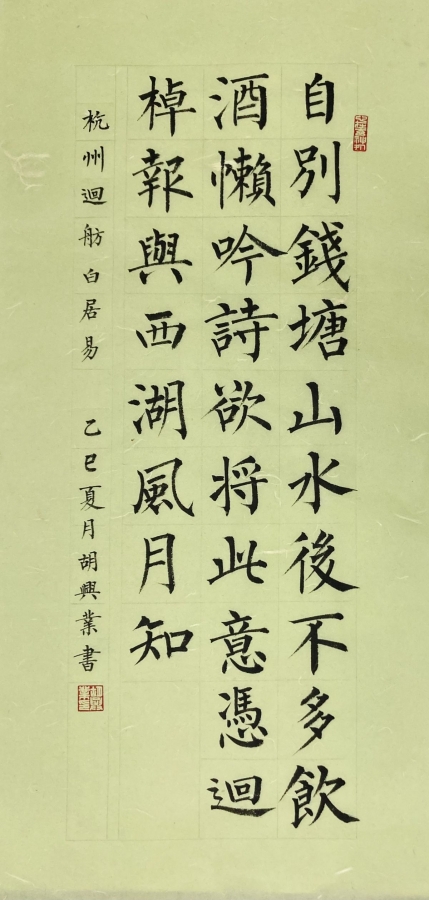 自別錢塘山水後不多飲
酒懶吟詩欲將此意憑迴
棹報與西湖風月知
杭州迴舫白居易 乙巳夏月胡興業書